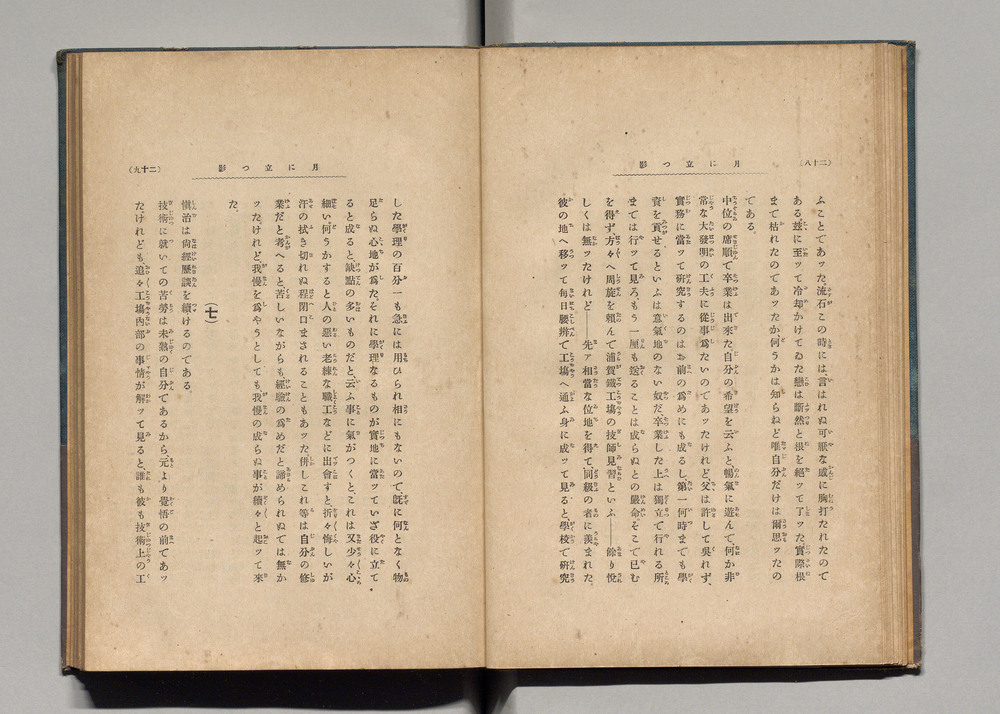 （二十八）
月に立つ影
ふことであッた、流石この時には言はれぬ可厭な感に胸打たれたので
ある。玆に至ッて冷却かけてゐた戀は斷然と根を絕ッて了ッた、實際根
まで枯れたのであッたか何うかは知らねど唯自分だけは爾思ッたの
である。
中位の席順で卒業は出來た自分の希望を云ふと暢氣に遊んで、何か非
常な大發明の工夫に從事爲たいのであッたけれど、父は許して吳れず、
實務に當ッて硏究するのはお前の爲めにも成るし第一何時までも學
資を貢せるといふは意氣地のない奴だ、卒業した上は獨立で行れる所
までは行ッて見ろ、もう一厘も送ることは成らぬとの嚴命、そこで已む
を得ず、方々へ周旋を賴んで浦賀鐵工場の技師見習といふ――餘り悅
しくは無ッたけれど――先ァ相當な位地を得て、同級の者に羨まれた。
彼の地へ移ッて每日腰辨で工塲へ通ふ身に成ッて見ると、學校で硏究
月に立つ影
（二十九）
した學理の百分一も急には用ひられ相にもないので、旣に何となく物
足らぬ心地が爲た。それに學理なるものが實地に當ッていざ役に立て
ると成ると、缺點の多いものだと、云ふ事に氣がつくと、これは又少々心
細い何うかすると人の惡い老練な職工などに出會すと、折々悔しいが
汗の拭き切れぬ程閉口まされることもあッた併しこれ等は自分の修
業だと考へると、苦しいながらも經驗の爲めだと諦められぬでは無か
ッた、けれど、我慢を爲やうとしても、我慢の成らぬ事が續々と起ッて來
た。
（七）
愼治は尙經歷談を續けるのである。
技術に就いての苦勞は未熟の自分であるから、元より覺悟の前であッ
た、けれども、追々工塲內部の事情が解ッて見ると、誰も彼も技術上の工